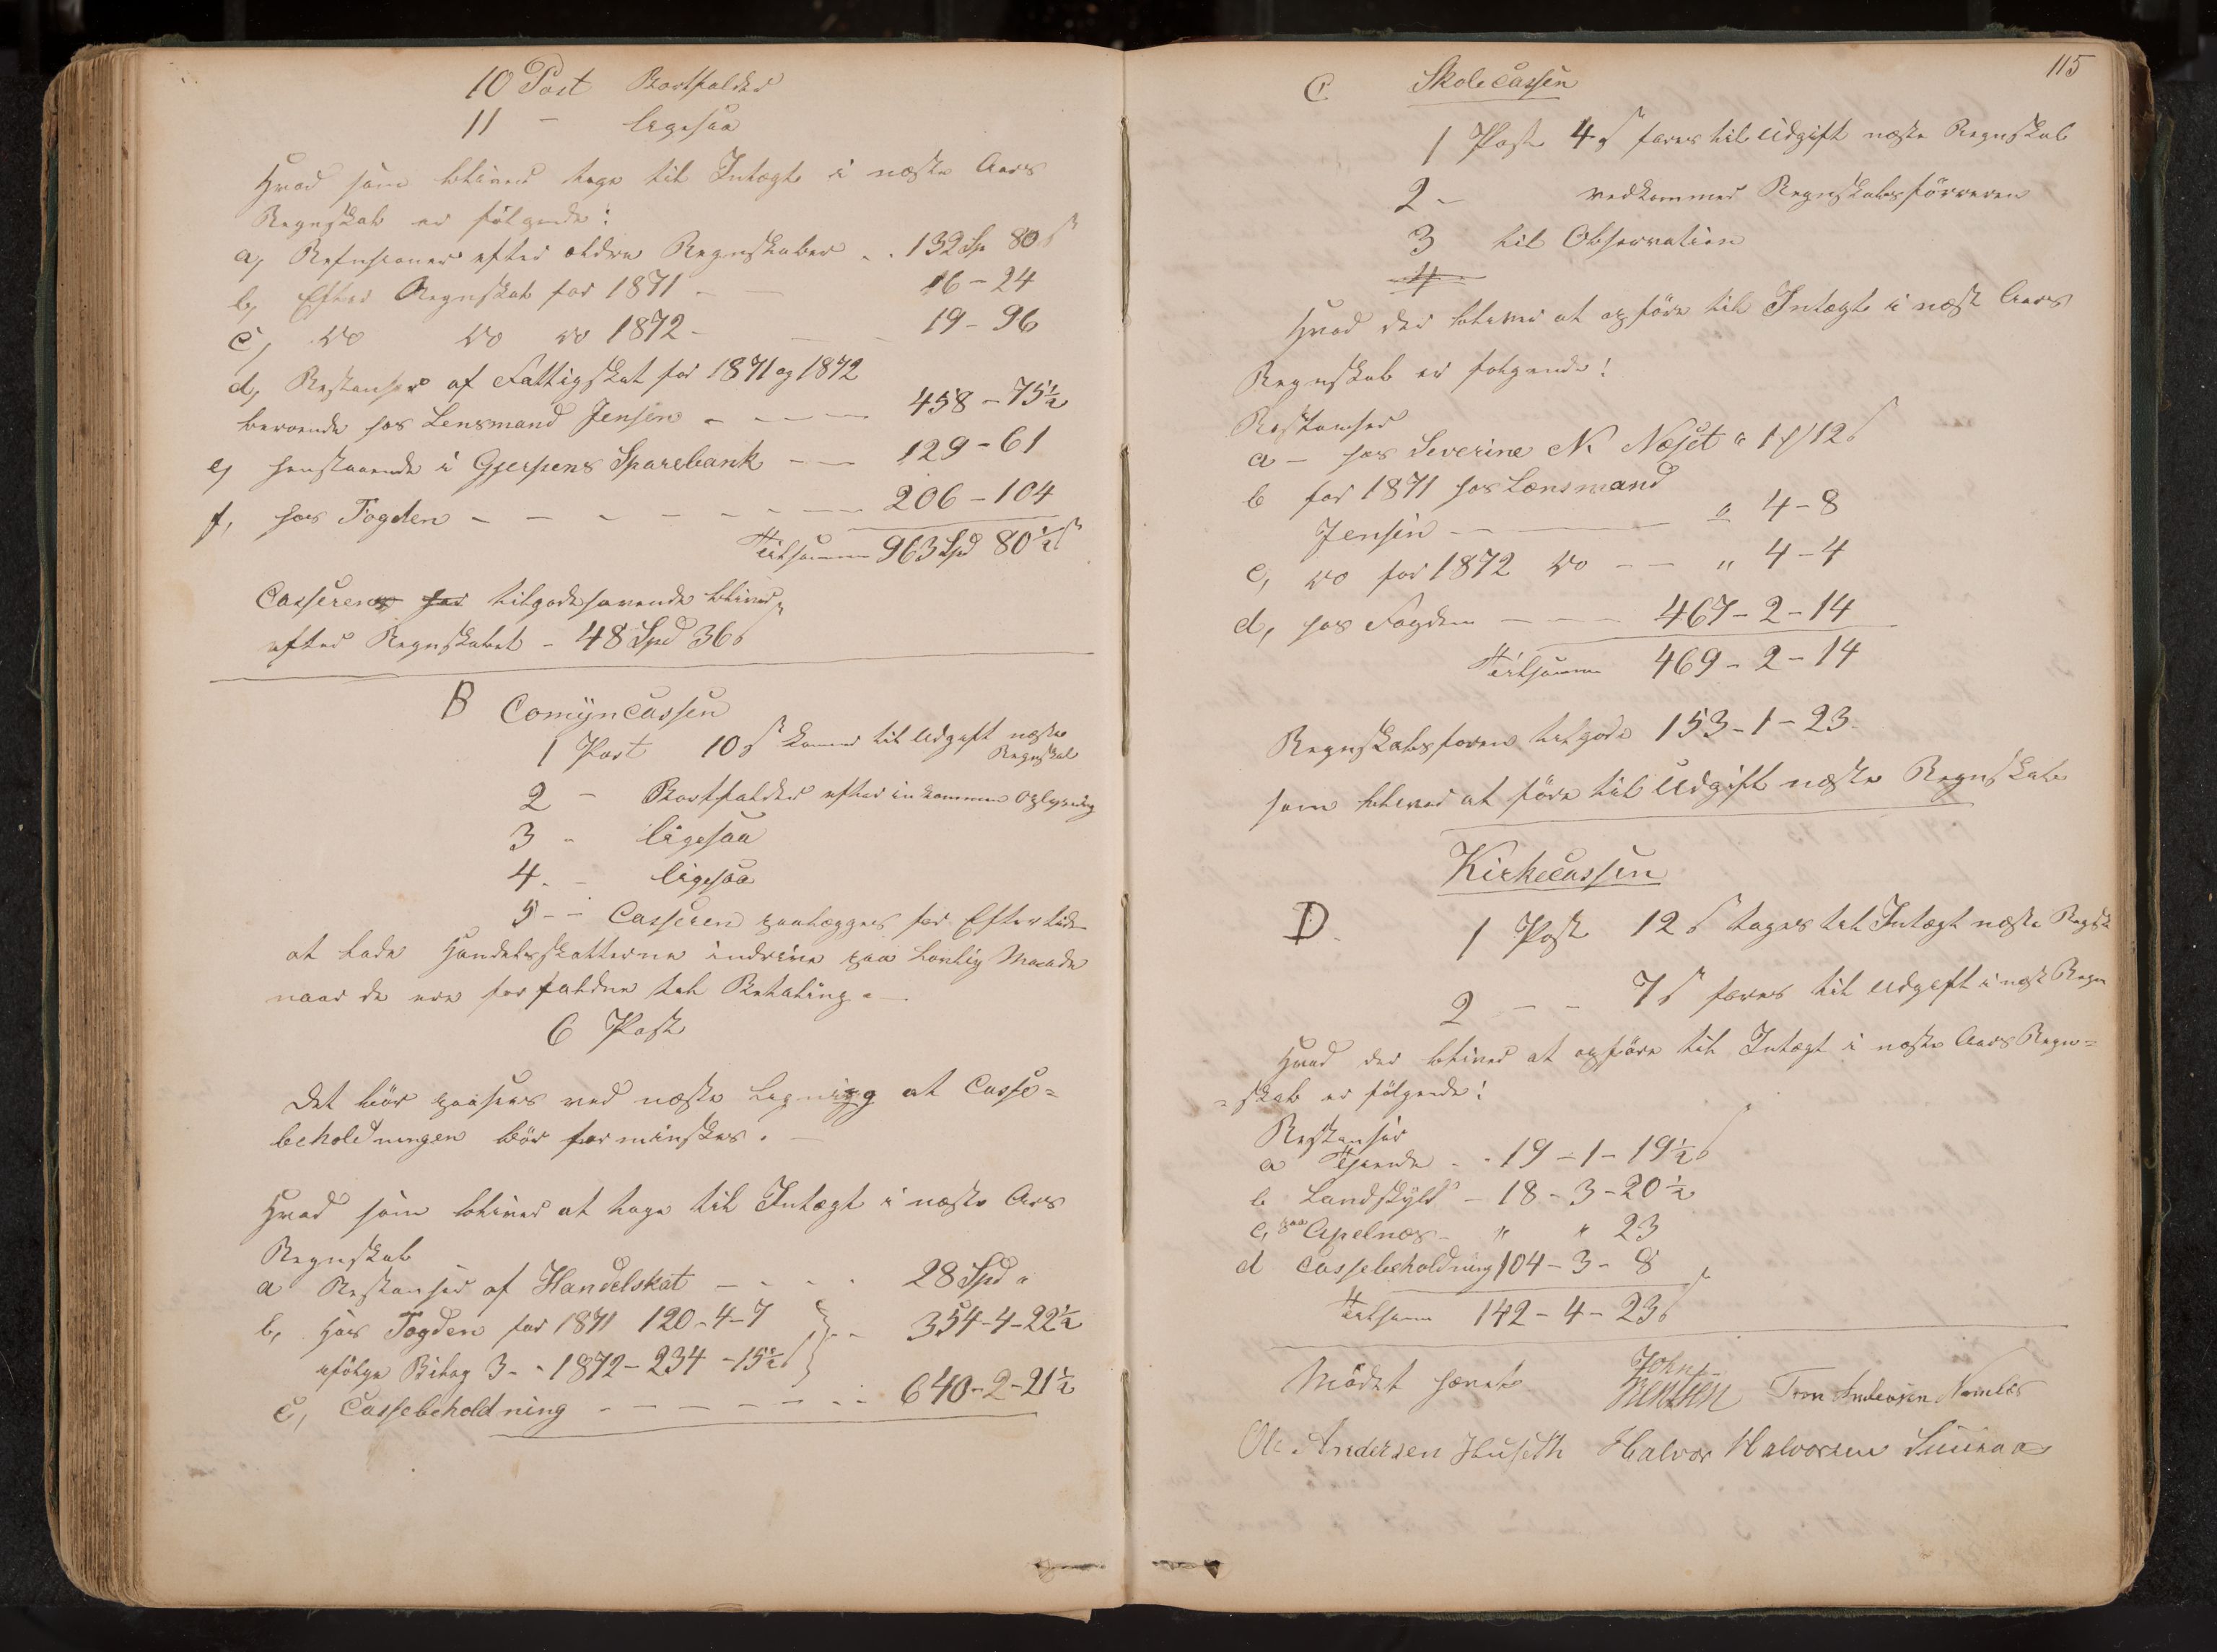 10 Post Bortfalder
11 - ligesaa
Hvad som bliver tage til Intægt i næste Aars
Regnskab er følgende:
a, Refusioner efter ældre Regnskaber . . 132 Sp 80 s
b, Efter Regnskab for 1871 - - 16 - 24
c, do do do 1872 - - - 19 - 96
d, Restanser af Fattigskat for 1871 og 1872
beroende hos Lensmand Jensen - - - - 458 - 75½
e, henstaaende i Gjerpens Sparebank - - 129 - 61
f, hos Fogden - - - - - - - 206 - 104
Tilsammen 963 Spd 80½ s
Casseren tilgodehavende bliver
efter Regnskabet - 48 Spd 36 s
B Comyncassen
1 Post 10 s kommer til Udgift næste
Regnskab
2 - Bortfalder efter inkommen Oplysning
3 - ligesaa
4 - ligesaa
5 - - Casseren paalægges for Eftertiden
at lade Handelsskatterne inddrive paa lovlig Maade
naar de ere forfaldne til Betaling -
6 Post
Det bør paasees ved næste Legning at Casse=
beholdningen bør forminskes. -
Hvad som bliver at tage til Intægt i næste Ars
Regnskab
a Restanser af Handelskat - - - - 28 Spd "
b, Hos Fogden for 1871 120 - 4 - 7 } - - 354 - 4 - 22½
ifølge Bilag 3 - - 1872 - 234 - 15½ s
c, Cassebeholdning - - - - - - - 640 - 2 - 21½
115
C Skolecassen
1 Post 4 s føres til Udgift næste Regnskab
2 - vedkommer Regnskabsførreren
3 til Observation
4
Hvad der bliver at opføre til Intægt i næste Aars
Regnskab er følgende!
Restanser
a - hos Severine N. Næset " 1 / 12 s
b for 1871 hos Lænsmand
Jensen - - - " 4 - 8
c, do for 1872 do - - " 4 - 4
d, hos Fogden - - - - 467 - 2 - 14
Tilsammen 469 - 2 - 14
Regnskabsføren tilgode 153 - 1 - 23.
som bliver at føre til Udgift næste Regnskab
Kirkecassen
D. 1 Post 12 s tages til Intægt næste Regsk
2 - - 7 s føres til Udgift i næste Regn
Hvad der bliver at opføre til Intægt i næste Aars Regn=
=skab er følgende!
Restanser
a Tiende - - 19 - 1 - 19½ s
b Landskyld - 18 - 3 - 20½
c, paa Apelnæs - " " 23
d Cassebeholdning 104 - 3 - 8
Tilsamm 142 - 4 - 23 s
Mödet hævet
John
Bentsen
Ole Andersen Huseth Halvor Halvorsen